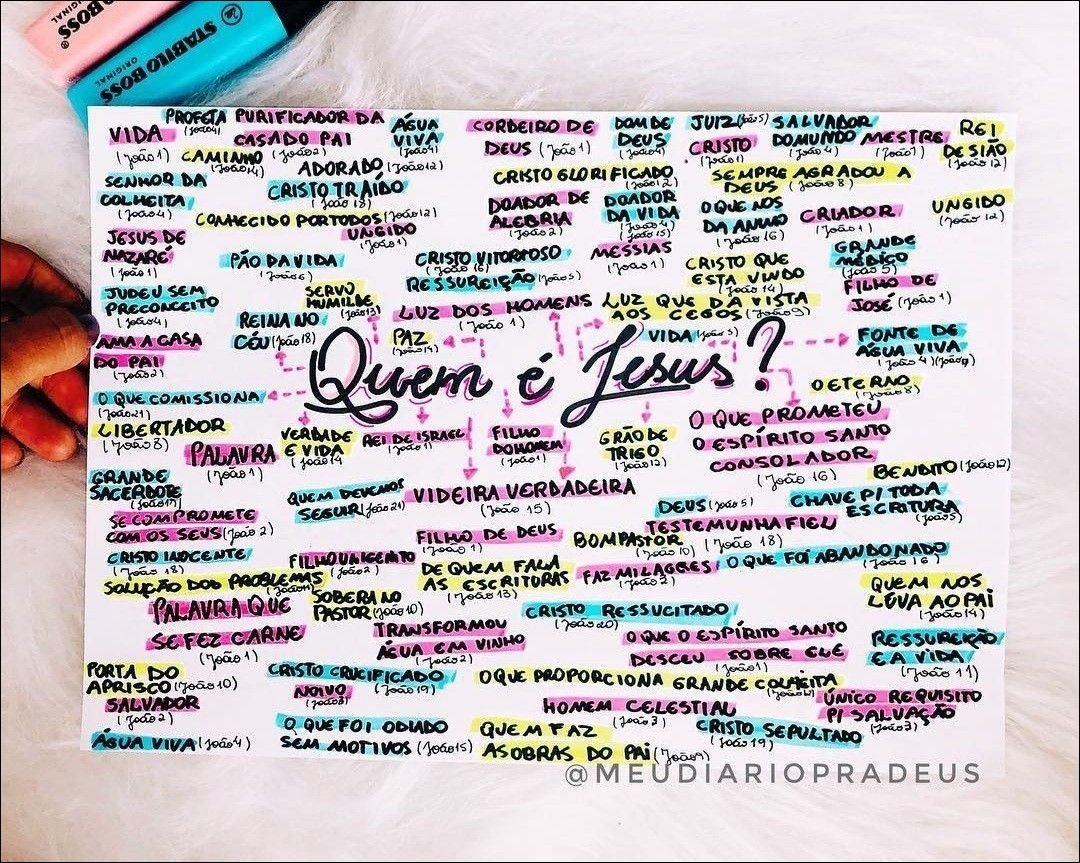 STABILO BOSS
ORIGINAL
BOSS
ORIGINAL
PROFETA (João 4) PURIFICADOR DA
CASA DO PAI (João 2)
VIDA
(João 1)
CAMINHO
(João 14)
ADORADO (João 12)
ÁGUA
VIVA
CORDEIRO DE
DEUS (João 1)
DOM DE
DEUS
(João 4)
JUIZ (João 5)
CRISTO
(João 1)
SALVADOR
DO MUNDO
(João 4)
MESTRE
(João 1)
REI
DE SIÃO
(João 12)
SENHOR DA
COLHEITA
(João 4)
CRISTO TRAÍDO
(João 18)
CRISTO GLORIFICADO
SEMPRE AGRADOU A
DEUS (João 8)
CONHECIDO POR TODOS (João 12)
UNGIDO
(João 1)
DOADOR DE
ALEGRIA
(João 2)
DOADOR
DA VIDA
(João 15)
O QUE NOS
DA ANIMO
(João 16)
CRIADOR
(João 1)
UNGIDO
(João 12)
JESUS DE
NAZARÉ
(João 1)
PÃO DA VIDA
(João 6)
CRISTO VITORIOSO
(João 16)
RESSUREIÇÃO (João 5)
MESSIAS
(João 1)
CRISTO QUE
ESTA VINDO
(João 14)
GRANDE
MÉDICO
(João 5)
FILHO DE
JOSÉ (João 1)
JUDEU SEM
PRECONCEITO
(João 4)
REINA NO
CÉU (João 18)
SERVO
HUMILDE
(João 13)
LUZ DOS HOMENS
(João 1)
LUZ QUE DA VISTA
AOS CEGOS (João 9)
PAZ
(João 14)
VIDA (João 5)
FONTE DE
ÁGUA VIVA
(João 4)
AMA A CASA
DO PAI
(João 2)
Quem é Jesus?
O QUE COMISSIONA
(João 21)
O ETERNO
(João 8)
LIBERTADOR
(João 8)
PALAVRA
(João 1)
VERDADE
E VIDA
(João 14
REI DE ISRAEL
(João 1)
FILHO
DO HOMEM
(João 1)
GRÃO DE
TRIGO
(João 12)
O QUE PROMETEU
O ESPÍRITO SANTO
CONSOLADOR
(João 16)
BENDITO (João 12)
GRANDE
SACERDOTE
(João 17)
QUEM DEVEMOS
SEGUIR (João 21)
VIDEIRA VERDADEIRA
(João 15)
DEUS (João 5)
CHAVE P/ TODA
ESCRITURA
(João 5)
SE COMPROMETE
COM OS SEUS (João 2)
FILHO DE DEUS
(João 1)
BOM PASTOR
(João 10)
TESTEMUNHA FIEL
(João 18)
CRISTO INOCENTE
(João 18)
FILHO UNIGENITO
(João 2)
DE QUEM FALA
AS ESCRITURAS
(João 13)
FAZ MILAGRES
(João 2)
O QUE FOI ABANDONADO
(João 16)
SOLUÇÃO DOS PROBLEMAS
SOBERANO
PASTOR (João 10)
QUEM NOS
LEVA AO PAI
(João 14)
PALAVRA QUE
SE FEZ CARNE
(João 1)
CRISTO RESSUCITADO
(João 20)
TRANSFORMOU
ÁGUA EM VINHO
(João 2)
O QUE O ESPÍRITO SANTO
DESCEU SOBRE ELE
(João 1)
RESSUREIÇÃO
E A VIDA
(João 11)
PORTA DO
APRISCO (João 10)
CRISTO CRUCIFICADO
(João 19)
O QUE PROPORCIONA GRANDE COLHEITA
SALVADOR
(João 2)
NOIVO
(João 3)
HOMEM CELESTIAL
(João 3)
ÚNICO REQUISITO
P/ SALVAÇÃO
(João 3)
ÁGUA VIVA (João 4)
O QUE FOI ODIADO
SEM MOTIVOS (João 15)
QUEM FAZ
AS OBRAS DO PAI (João 9)
CRISTO SEPULTADO
(João 19)
@MEUDIARIOPRADEUS